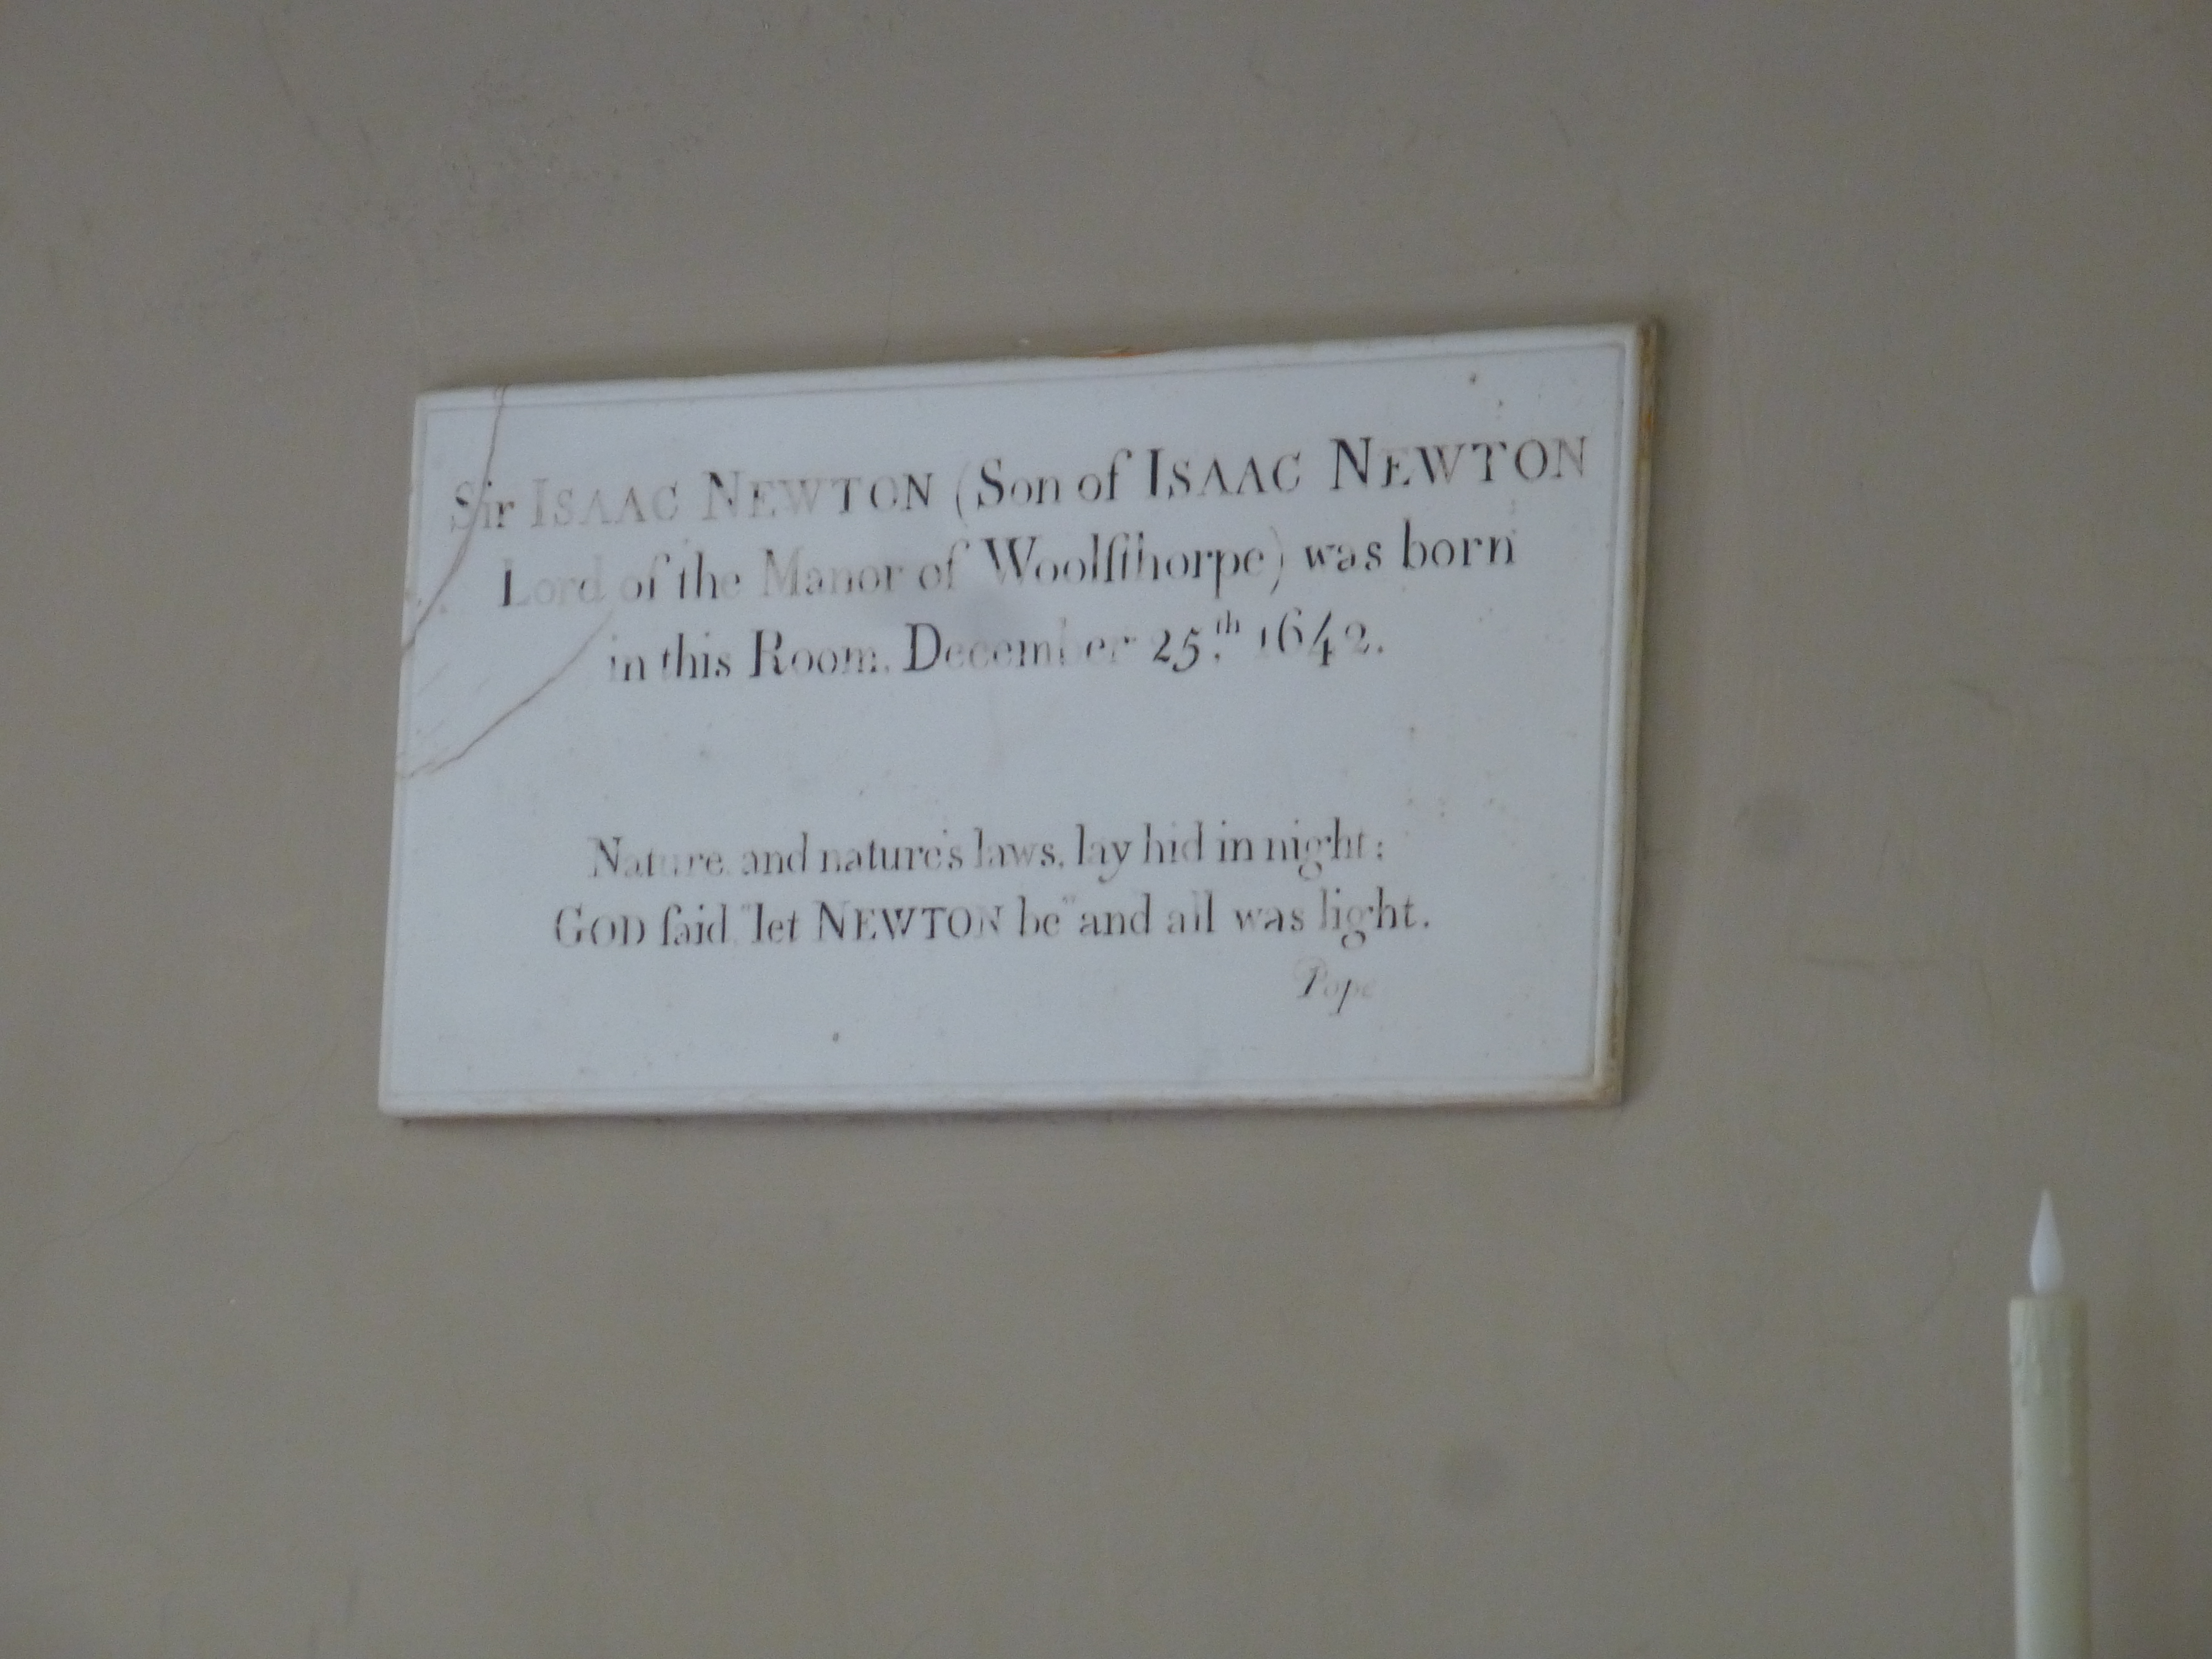 Sir ISAAC NEWTON (Son of ISAAC NEWTON
Lord of the Manor of Woolſthorpe) was born
in this Room, December 25.th 1642.
Nature, and nature's laws, lay hid in night;
GOD ſaid, "let NEWTON be" and all was light.
Pope